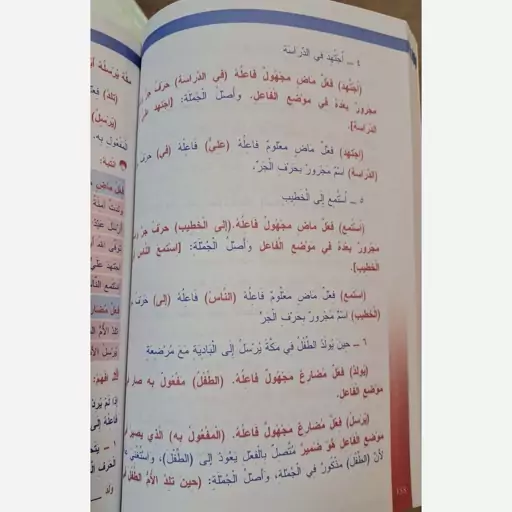 ٤ ــ اُجْتُهِدَ في الدِّرَاسَة
(اُجْتُهِدَ) فِعْلٌ مَاضٍ مَجْهُولٌ فَاعِلُهُ (في الدِّرَاسَة) حَرْفُ جَرٍّ
مَجْرُورٌ بَعْدَهُ في مَوْضِعِ الفَاعِلِ. وأَصْلُ الْجُمْلَةِ: [اجتهد
الدراسة].
(اجتهد) فِعْلٌ مَاضٍ مَعْلُومٌ فَاعِلُهُ (عليٌّ) فَاعِلُهُ (في) حَرْفُ
(الدِّرَاسَة) اسْمٌ مَجْرُورٌ بِحَرْفِ الْجَرِّ.
٥ ــ اُسْتُمِعَ إلَى الْخَطِيبِ
(اُسْتُمِعَ) فِعْلٌ مَاضٍ مَجْهُولٌ فَاعِلُهُ. (إلى الْخَطِيبِ) حَرْفُ جَرٍّ
مَجْرُورٌ بَعْدَهُ في مَوْضِعِ الفَاعِلِ وأَصْلُ الْجُمْلَةِ: [استمع النَّاسُ
الْخَطِيبِ].
(استمع) فِعْلٌ مَاضٍ مَعْلُومٌ فَاعِلُهُ (النَّاسُ) فَاعِلُهُ (إلى) حَرْفُ
(الْخَطِيبِ) اسْمٌ مَجْرُورٌ بِحَرْفِ الْجَرِّ
٦ ــ حِينَ يُولَدُ الطِّفْلُ في مَكَّةَ يُرْسَلُ إلَى الْبَادِيَةِ مَعَ مُرْضِعَةٍ
(يُولَدُ) فِعْلٌ مُضَارِعٌ مَجْهُولٌ فَاعِلُهُ. (الطِّفْلُ) مَفْعُولٌ بِهِ صار
موضع الفاعل.
(يُرْسَلُ) فِعْلٌ مُضَارِعٌ مَجْهُولٌ فَاعِلُهُ. (الْمَفْعُولُ بِهِ) الَّذي يصير
موضع الفاعل هُوَ ضَمِيرٌ مُتَّصِلٌ بِالْفِعْلِ يَعُودُ إلى (الطِّفْلُ)،
لأنَّ (الطِّفْلُ) مَذْكُورٌ في الْجُمْلَة، وأَصْلُ الْجُمْلَةِ: (حين تَلِدُ الأمُّ الطفل
١٥٨